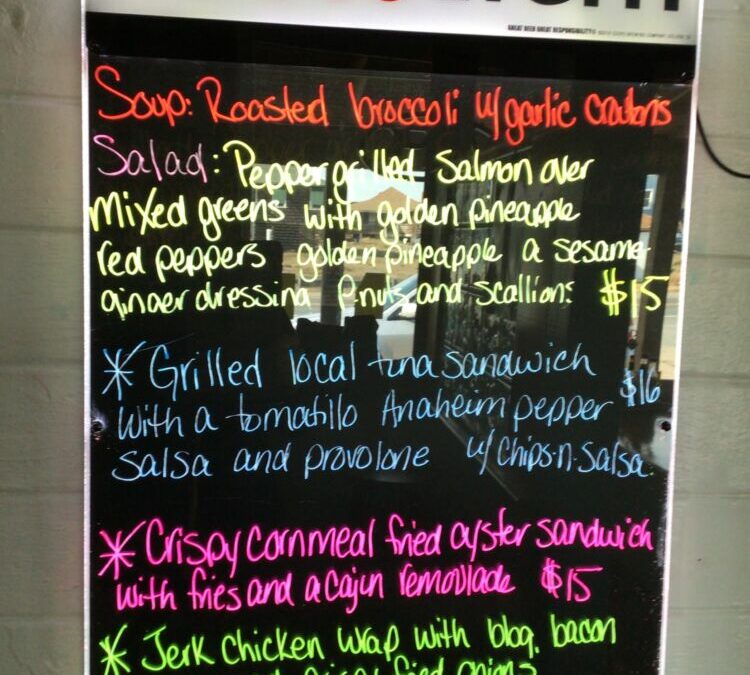 GREAT BEER GREAT RESPONSIBILITY®
Soup: Roasted broccoli w/ garlic croutons
Salad: Pepper grilled Salmon over
Mixed greens with golden pineapple
red peppers golden pineapple a sesame
ginger dressing P.nuts and scallions $15
* Grilled local tuna sandwich
with a tomatillo Anaheim pepper $16
salsa and provolone w/ chips-n-salsa
* Crispy cornmeal fried oyster sandwich
with fries and a cajun remoulade $15
* Jerk chicken wrap with bbq. bacon
fried onions